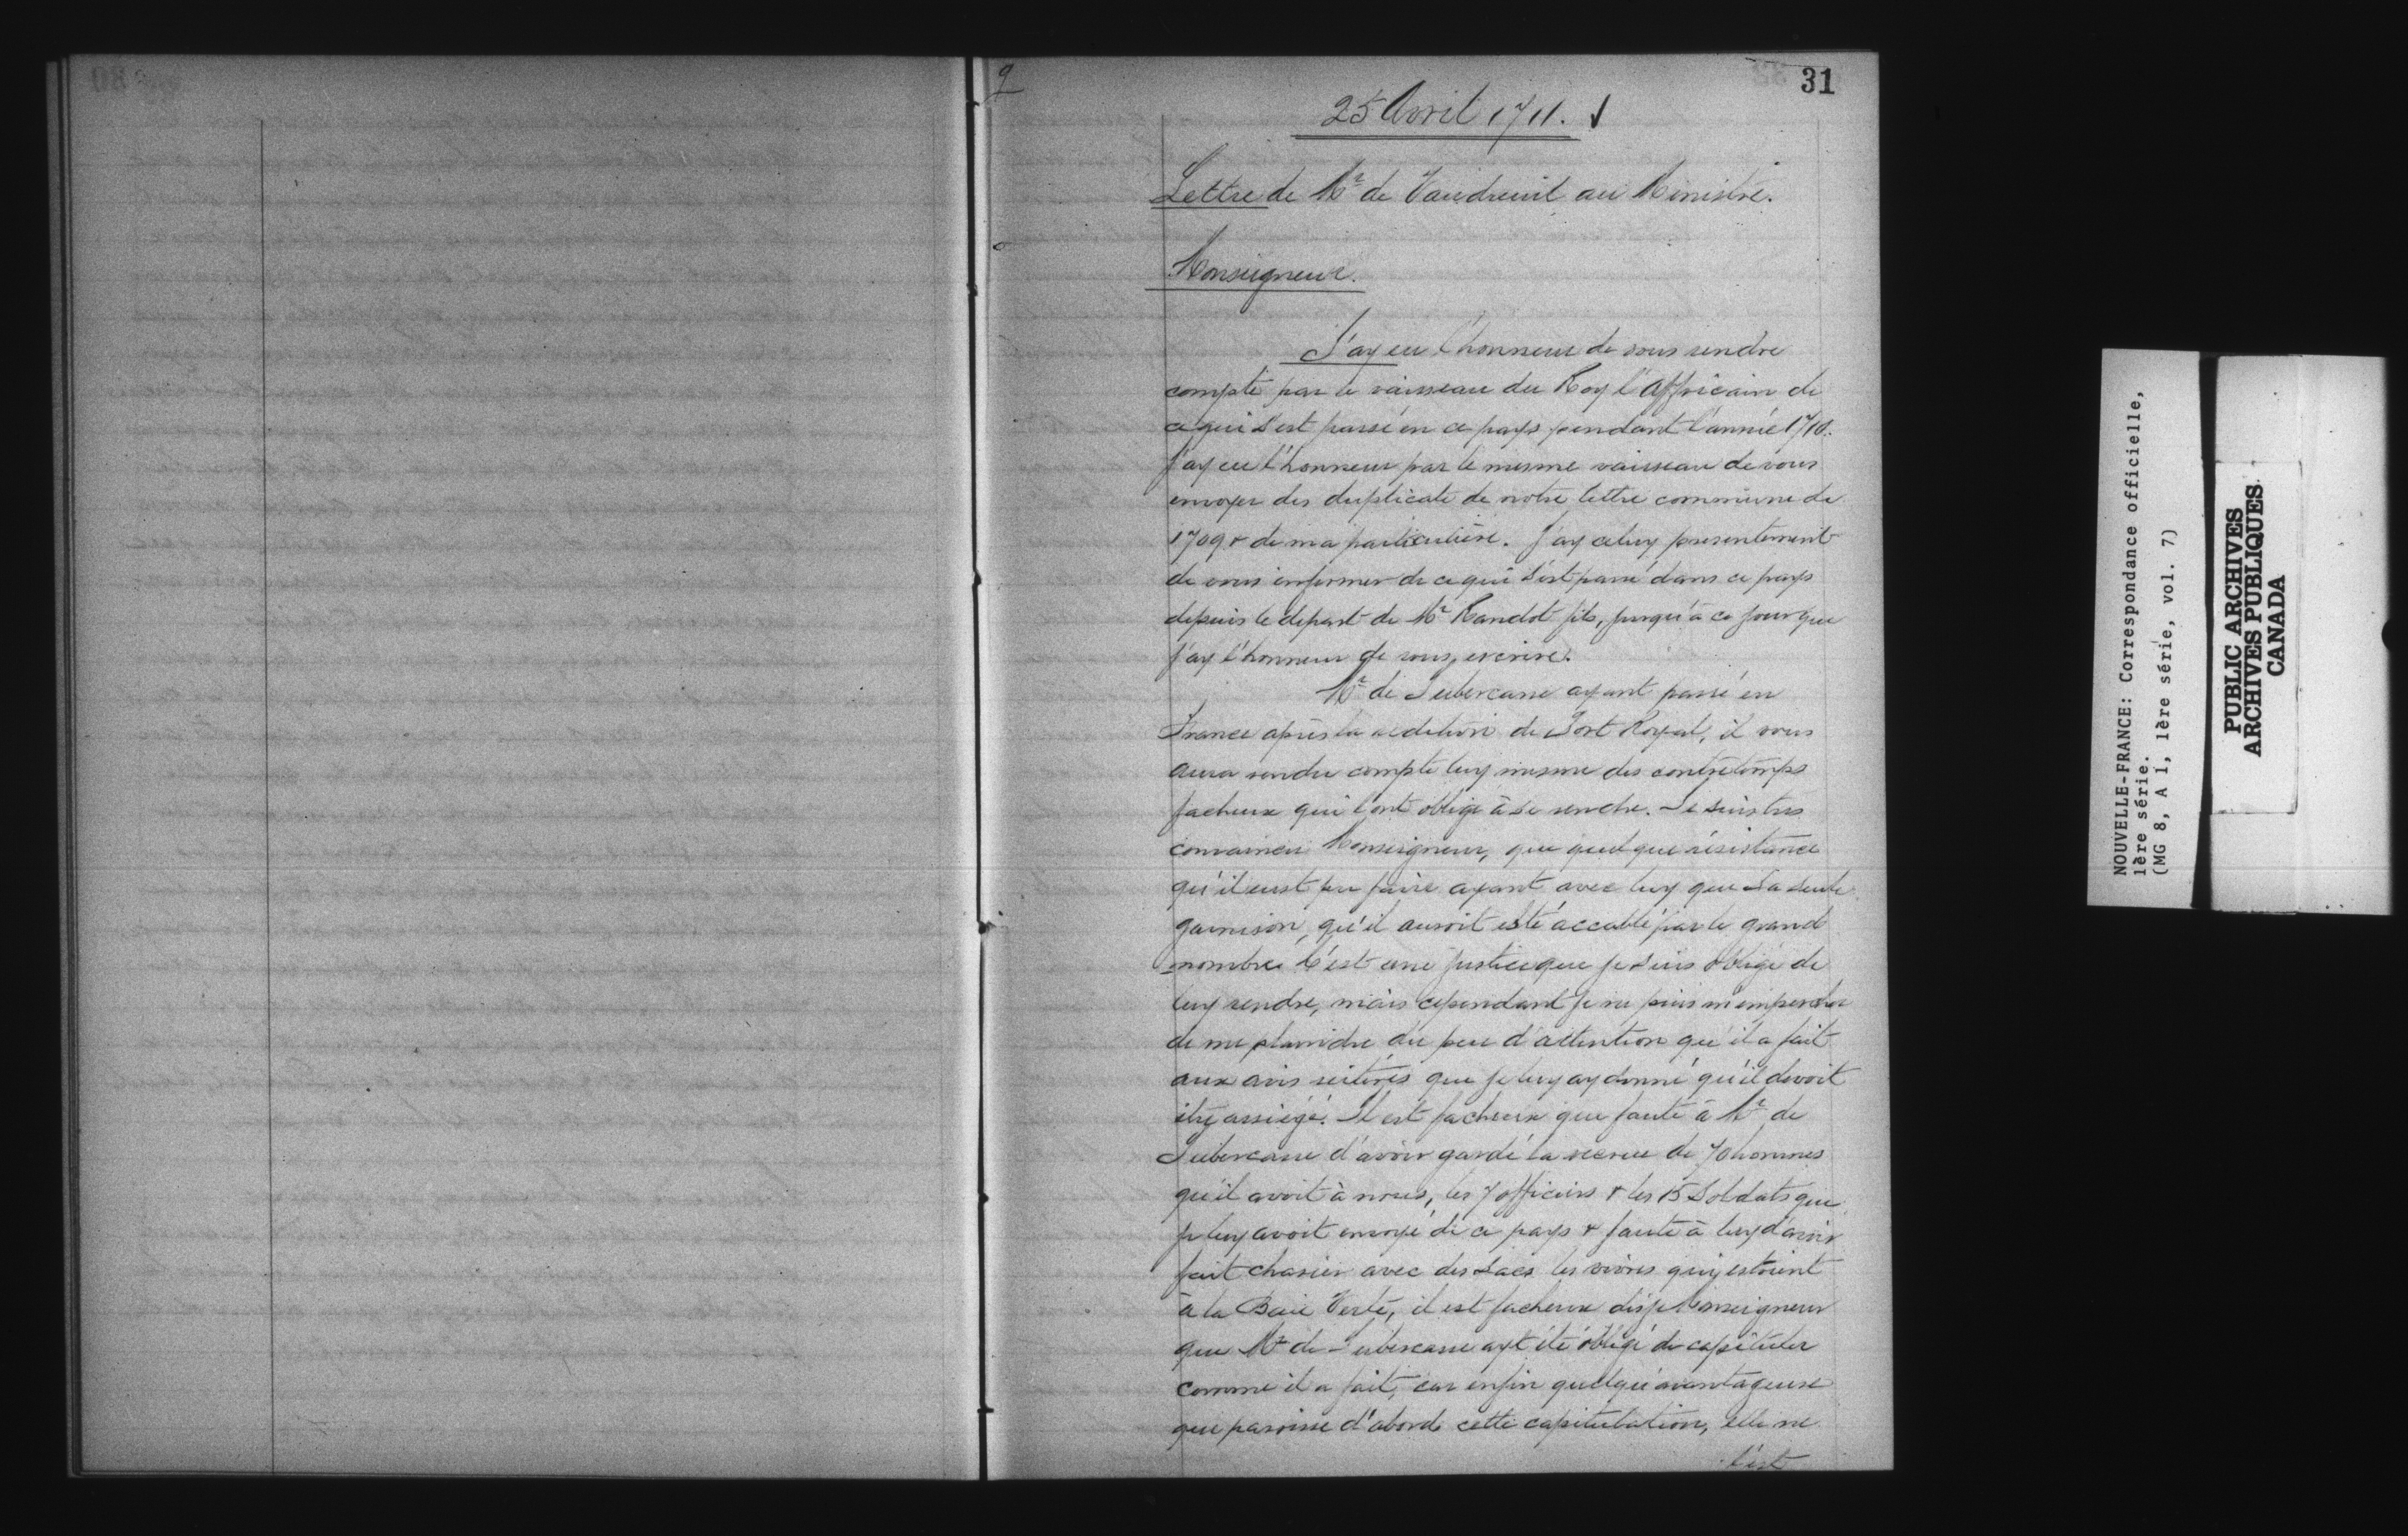 31
25 Avril 1711.
Lettre de Mr de Vaudreuil au Ministre.
Monseigneur.
J'ay eu l'honneur de vous rendre
compte par le vaisseau du Roy l'Affricain de
ce qui s'est passé en ce pays pendant l'année 1710.
j'ay eu l'honneur par le mesme vaisseau de vous
envoyer des duplicata de notre lettre commune de
1709 & de ma particulière. J'ay celuy presentement
de vous informer de ce qui s'est passé dans ce pays
depuis le depart de Mr Raudot fils, jusqu'à ce jour que
j'ay l'honneur de vous escrire.
Mr de Subercasse ayant passé en
France après la redition de Port Royal, il vous
aura rendu compte luy mesme des contretemps
facheux qui l'ont obligé à se rendre. Je suis tres
convaincu Monseigneur, que quelque résistance
qu'il eust pu faire ayant avec luy que sa seule
garnison, qu'il auroit esté accablé par le grand
nombre. C'est une justice que je suis obligé de
luy rendre, mais cependant je ne puis m'empescher
de me plaindre du peu d'attention qu'il a fait
aux avis reitérés que je luy ay donné qu'il devoit
être assiégé. Il est facheux que faute à Mr de
Subercasse d'avoir gardé la recrue de 70 hommes
qu'il avoit à nous, les 7 officiers & les 15 Soldats que
je luy avoit envoyé de ce pays & faute à luy d'avoir
fait charier avec des Sacs les vivres qui y estoient
à la Baie Verte, il est facheux dis je Monseigneur
que Mr de Subercasse ayt été obligé de capituler
comme il a fait, car enfin quelqu'avantageuse
que paroisse d'abord cette capitulation, elle ne
l'est
NOUVELLE-FRANCE: Correspondance officielle,
1ère série.
(MG 8, A 1, 1ère série, vol. 7)
PUBLIC ARCHIVES
ARCHIVES PUBLIQUES
CANADA